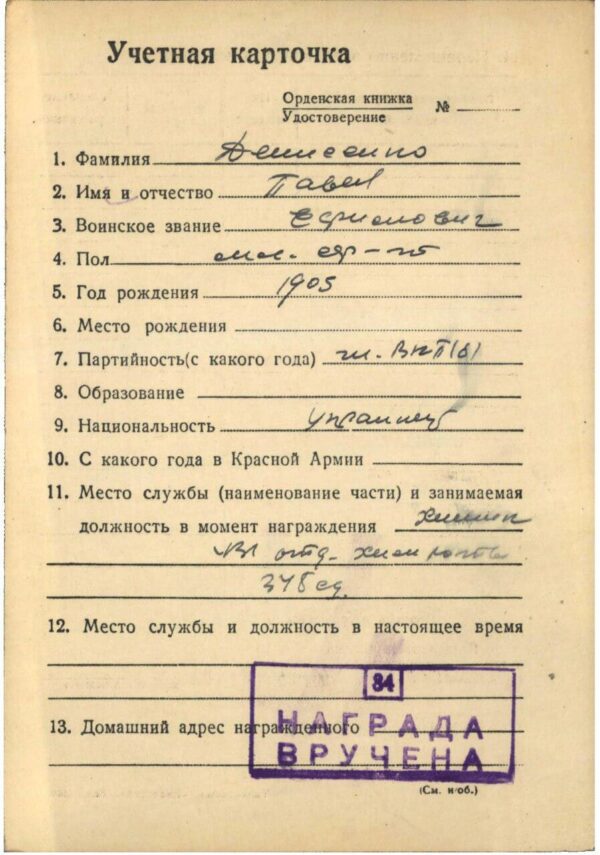 Учетная карточка
Орденская книжка
Удостоверение
№
1. Фамилия Денисенко
2. Имя и отчество Павел
3. Воинское звание Ефимович
4. Пол мл. с-р-т
5. Год рождения 1905
6. Место рождения
7. Партийность(с какого года) чл. ВКП(б)
8. Образование
9. Национальность украинец
10. С какого года в Красной Армии
11. Место службы (наименование части) и занимаемая
должность в момент награждения химик
отд. хим
348 сд.
12. Место службы и должность в настоящее время
84
13. Домашний адрес награжденного
НАГРАДА
ВРУЧЕНА
(См. н об.)